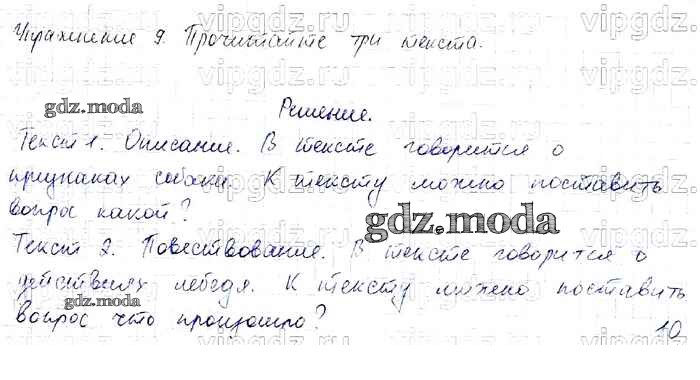 Упражнение 9. Прочитайте три текста.
Решение.
Текст 1. Описание. В тексте говорится о
признаках собаки. К тексту можно поставить
вопрос какой?
Текст 2. Повествование. В тексте говорится о
действиях лебедя. К тексту можно поставить
вопрос что произошло?
10
gdz.moda
gdz.moda
gdz.moda
vipgdz.ru